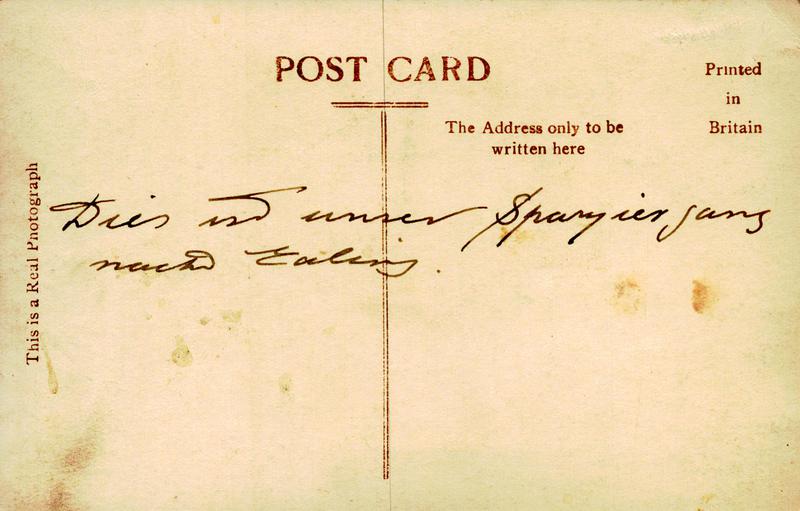 POST CARD
Printed
in
Britain
The Address only to be
written here
This is a Real Photograph
Dies ist unser Spaziergang
nach Ealing.